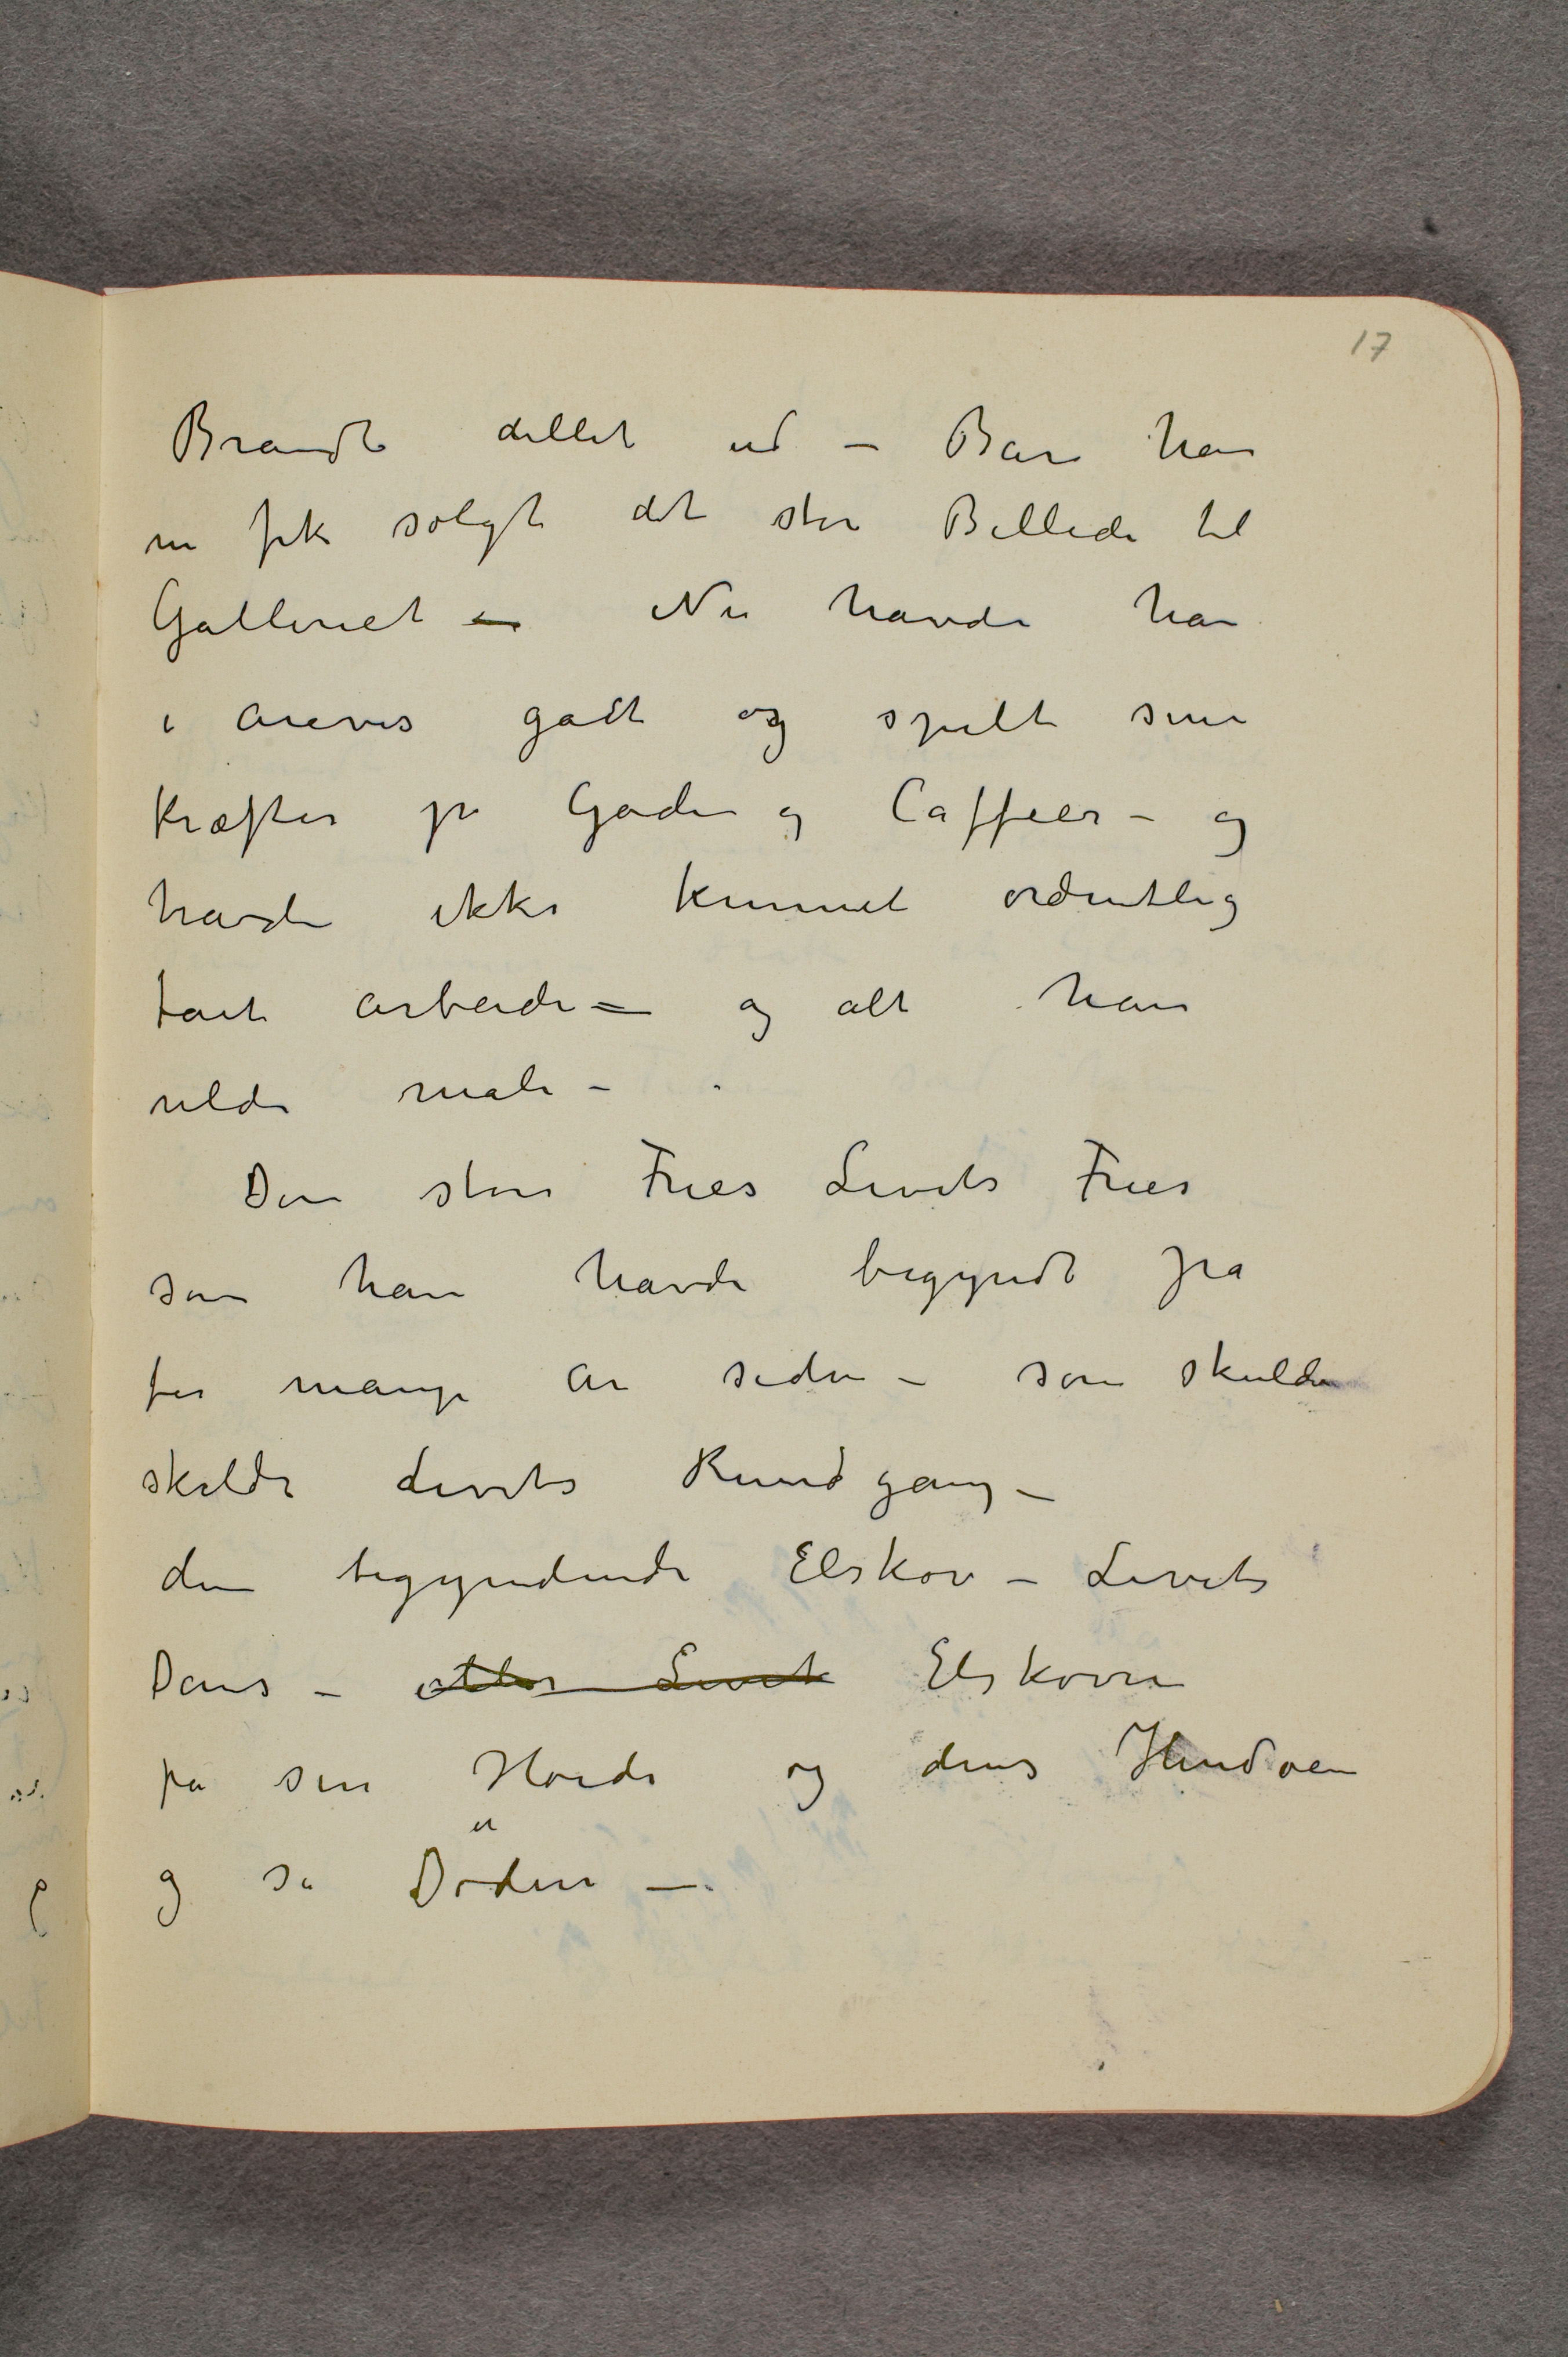 17
Brandt dillet ud – Bare han
nu fik solgt det store Billede til
Galleriet – Nu havde han
i årevis gåt og spilt sine
Kræfter på Gaden og Caffeer – og
havde ikke kunnet ordentlig
tat arbeide – og alt han
vilde male –
Den store Fries Livets Fries
som han havde begyndt på
for mange år siden – som skulde
skildre Livets Rundgang –
den begyndende Elskov – Livets
Dans – eller Livet Elskoven
på sin Høide og dens Hendøen
og så Døden –